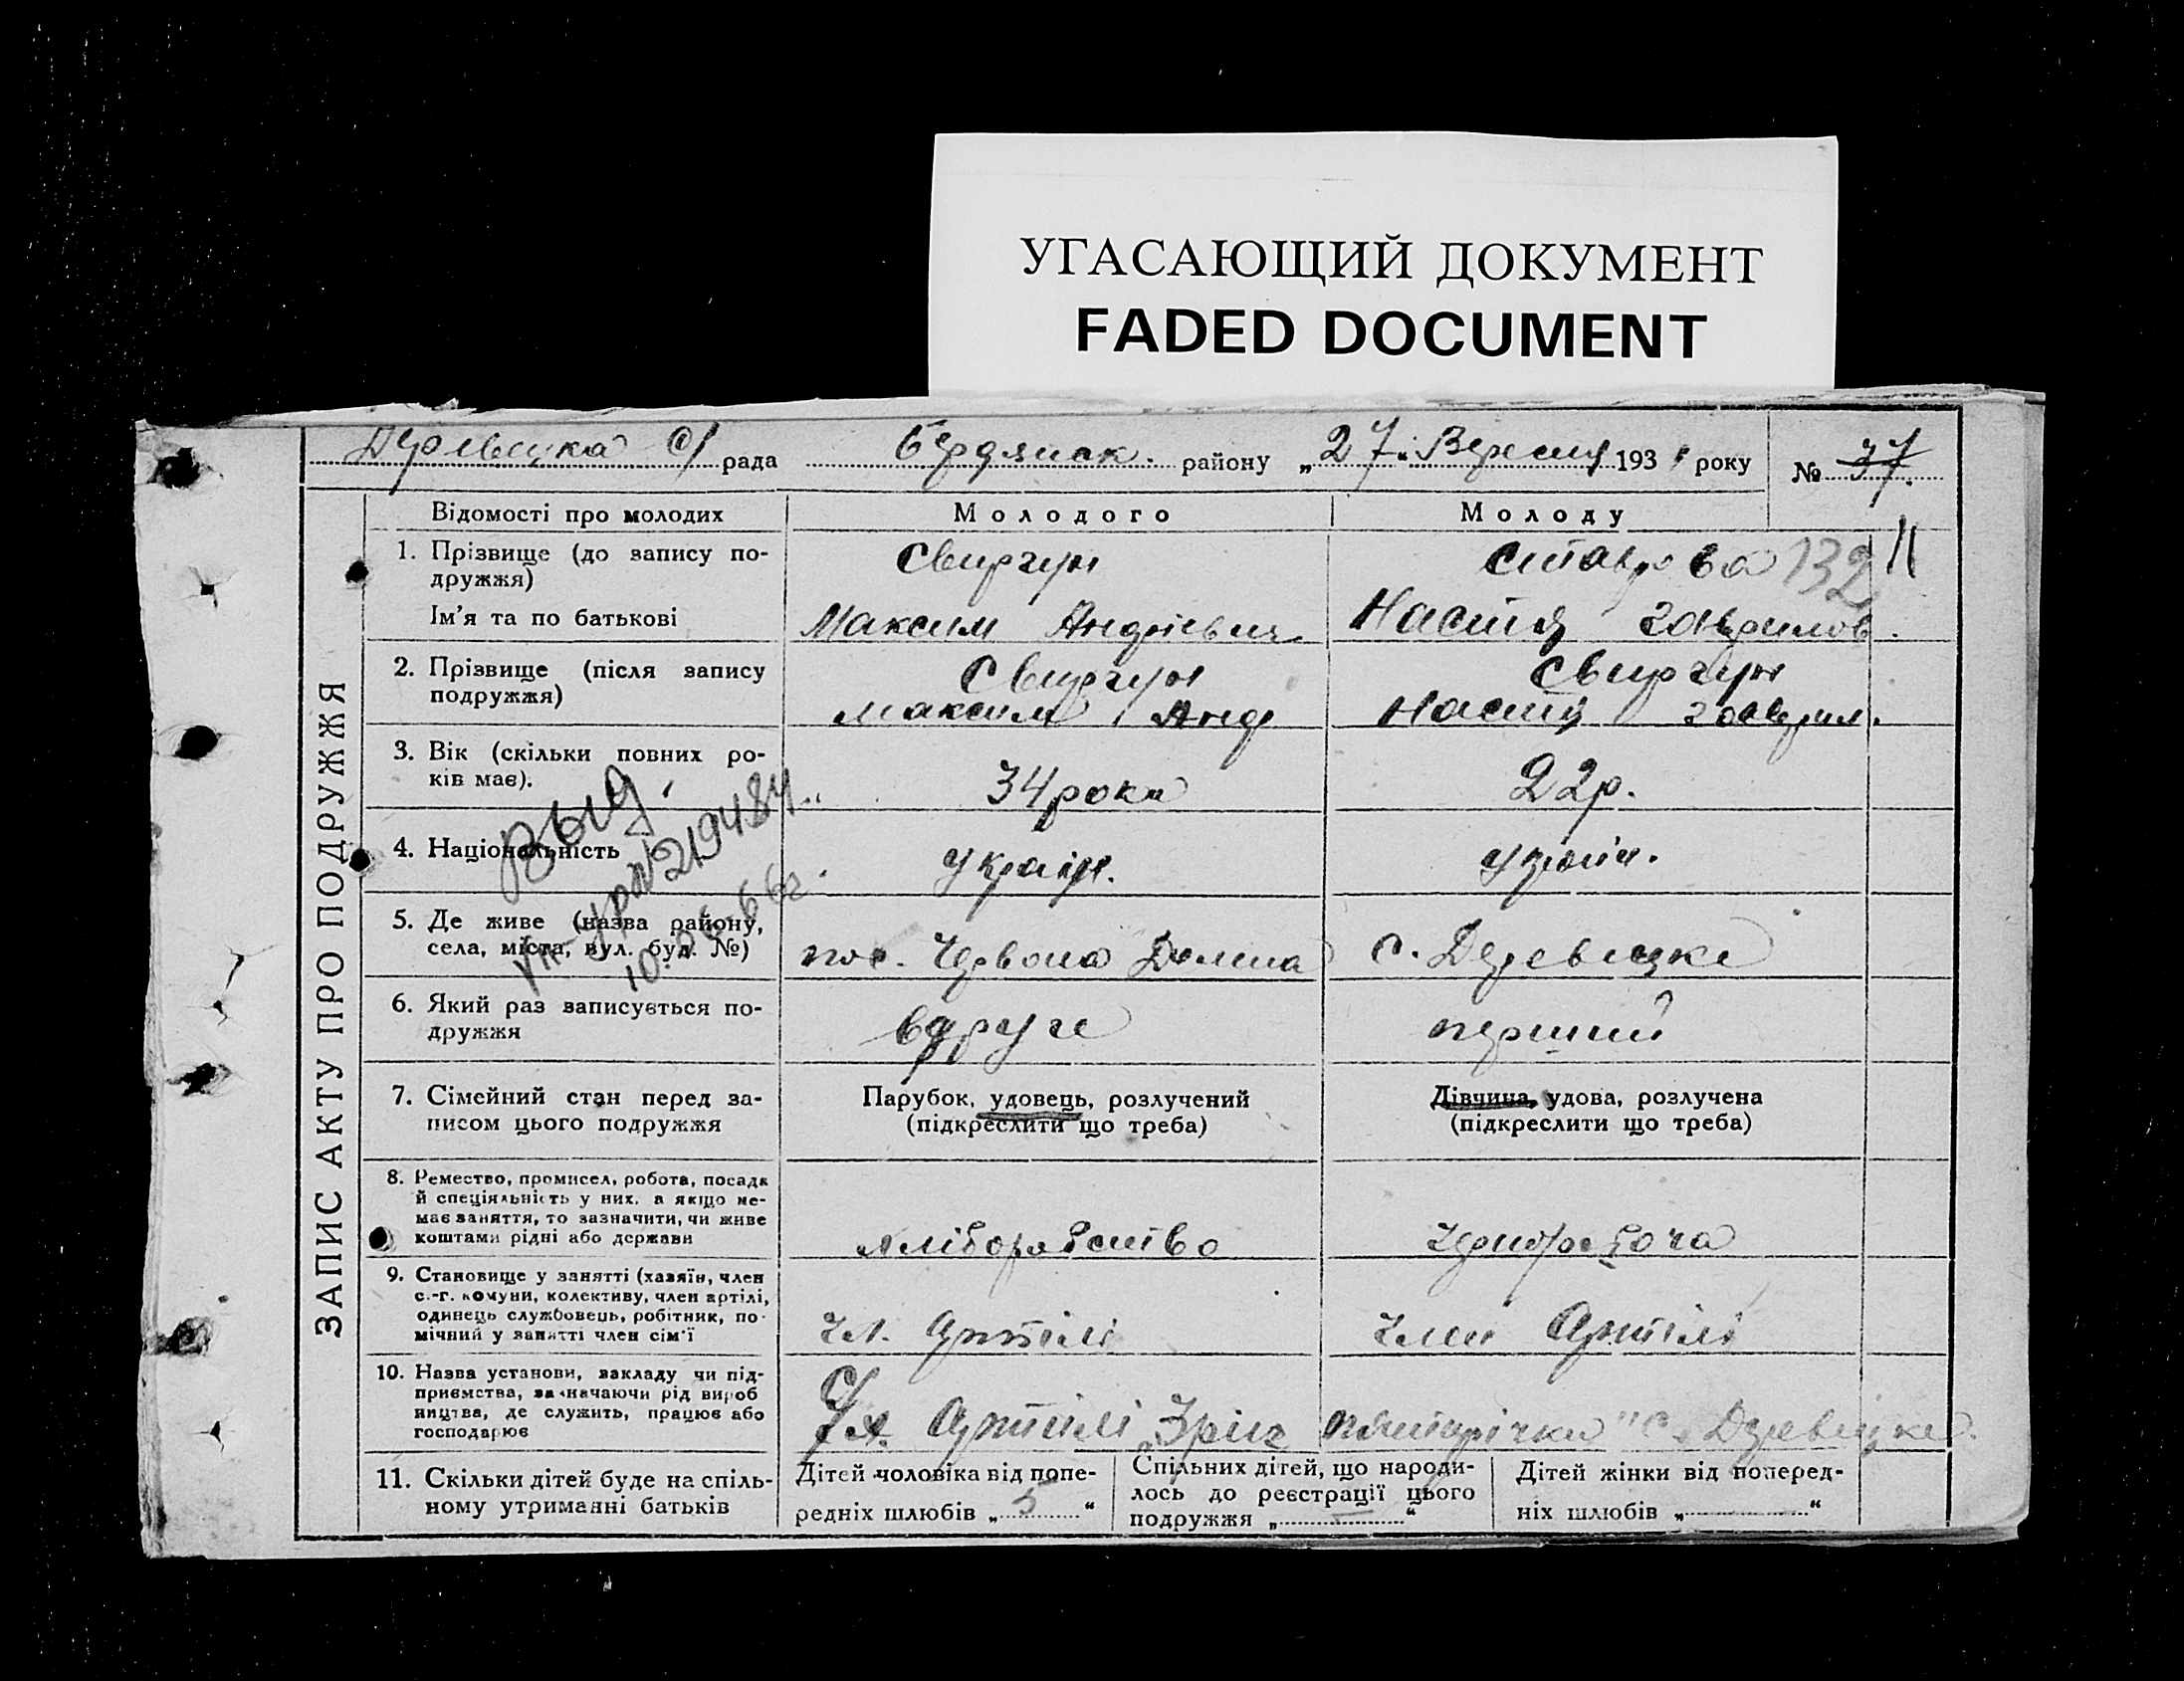 УГАСАЮЩИЙ ДОКУМЕНТ
FADED DOCUMENT
с/ рада Бердянск. району „27“ Вересня 193 року № 37.
ЗАПИС АКТУ ПРО ПОДРУЖЖЯ
Відомості про молодих Молодого Молоду
132 11
1. Прізвище (до запису по-
дружжя)
Свиргун Ставрова
Ім'я та по батькові
Максим Андрієвич Настя Гаврилов.
2. Прізвище (після запису
подружжя)
Свиргун Свиргун
Максим Андр Настя Гаврил.
3. Вік (скільки повних ро-
ків має).
34 роки 22р.
Выд.
№219484
4. Національність
Україн. Україн.
5. Де живе (назва району,
села, міста, вул. буд. №)
пос. Червона Долина с.
6. Який раз записується по-
дружжя
вдруге перший
7. Сімейний стан перед за-
писом цього подружжя
Парубок, удовець, розлучений
(підкреслити що треба)
Дівчина, удова, розлучена
(підкреслити що треба)
8. Ремество, промисел, робота, посада
й спеціяльність у них, а якщо не-
має заняття, то зазначити, чи живе
коштами рідні або держави
хліборобство чорноробоча
9. Становище у занятті (хазяїн, член
с.-г. комуни, колективу, член артілі,
одинець службовець, робітник, по-
мічний у занятті член сім'ї
чл. Артілі Член Артілі
10. Назва установи, закладу чи під-
приємства, зазначаючи рід вироб
ництва, де служить, працює або
господарює
Артілі с.
11. Скільки дітей буде на спіль-
ному утриманні батьків
Дітей чоловіка від попе-
редніх шлюбів „ 5 “
Спільних дітей, що народи-
лось до реєстрації цього
подружжя „ — “
Дітей жінки від поперед-
ніх шлюбів „ “